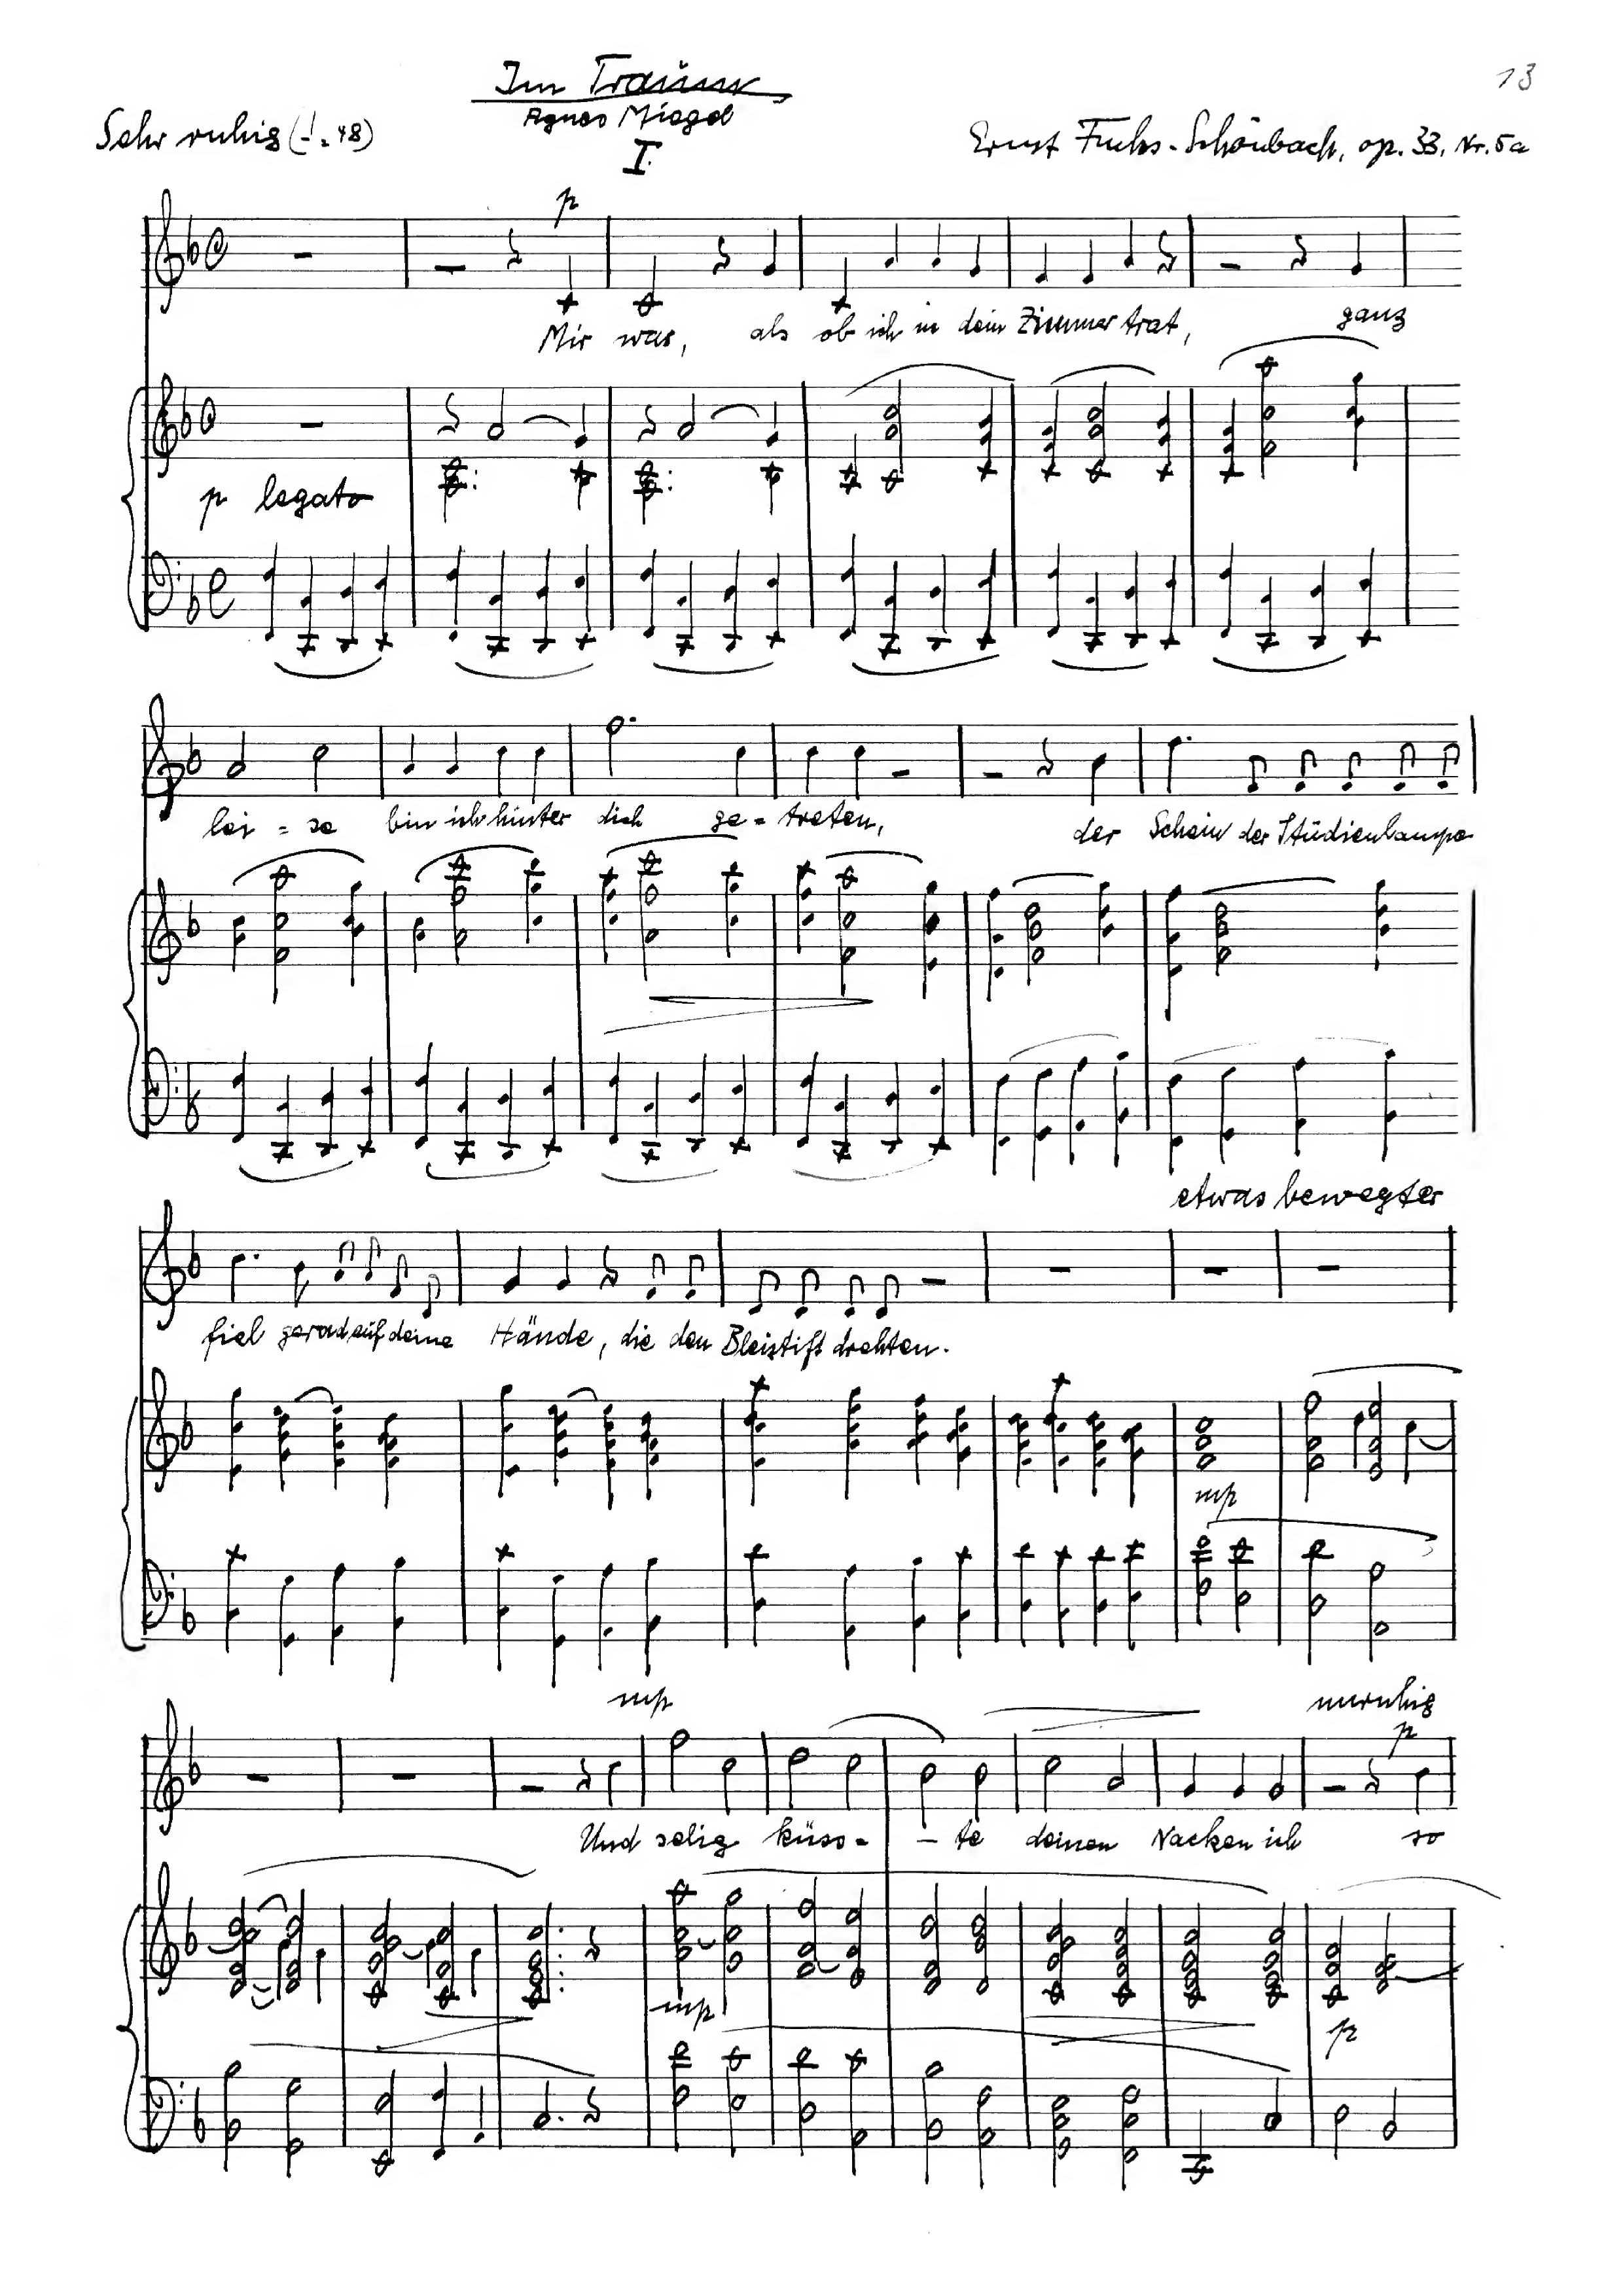 13
Im Traum
Agnes Miegel
Sehr ruhig (♩=48)
I.
Ernst Fuchs-Schönbach, op. 33, Nr. 5a
p
Mir war, als ob ich in dein Zimmer trat, ganz
p legato
lei = se bin ich hinter dich ge = treten, der Schein der Studienlampe
etwas bewegter
fiel gerad auf deine Hände, die den Bleistift drehten.
mp
mp
unruhig
p
Und selig küss - - te deinen Nacken ich so
mp
p